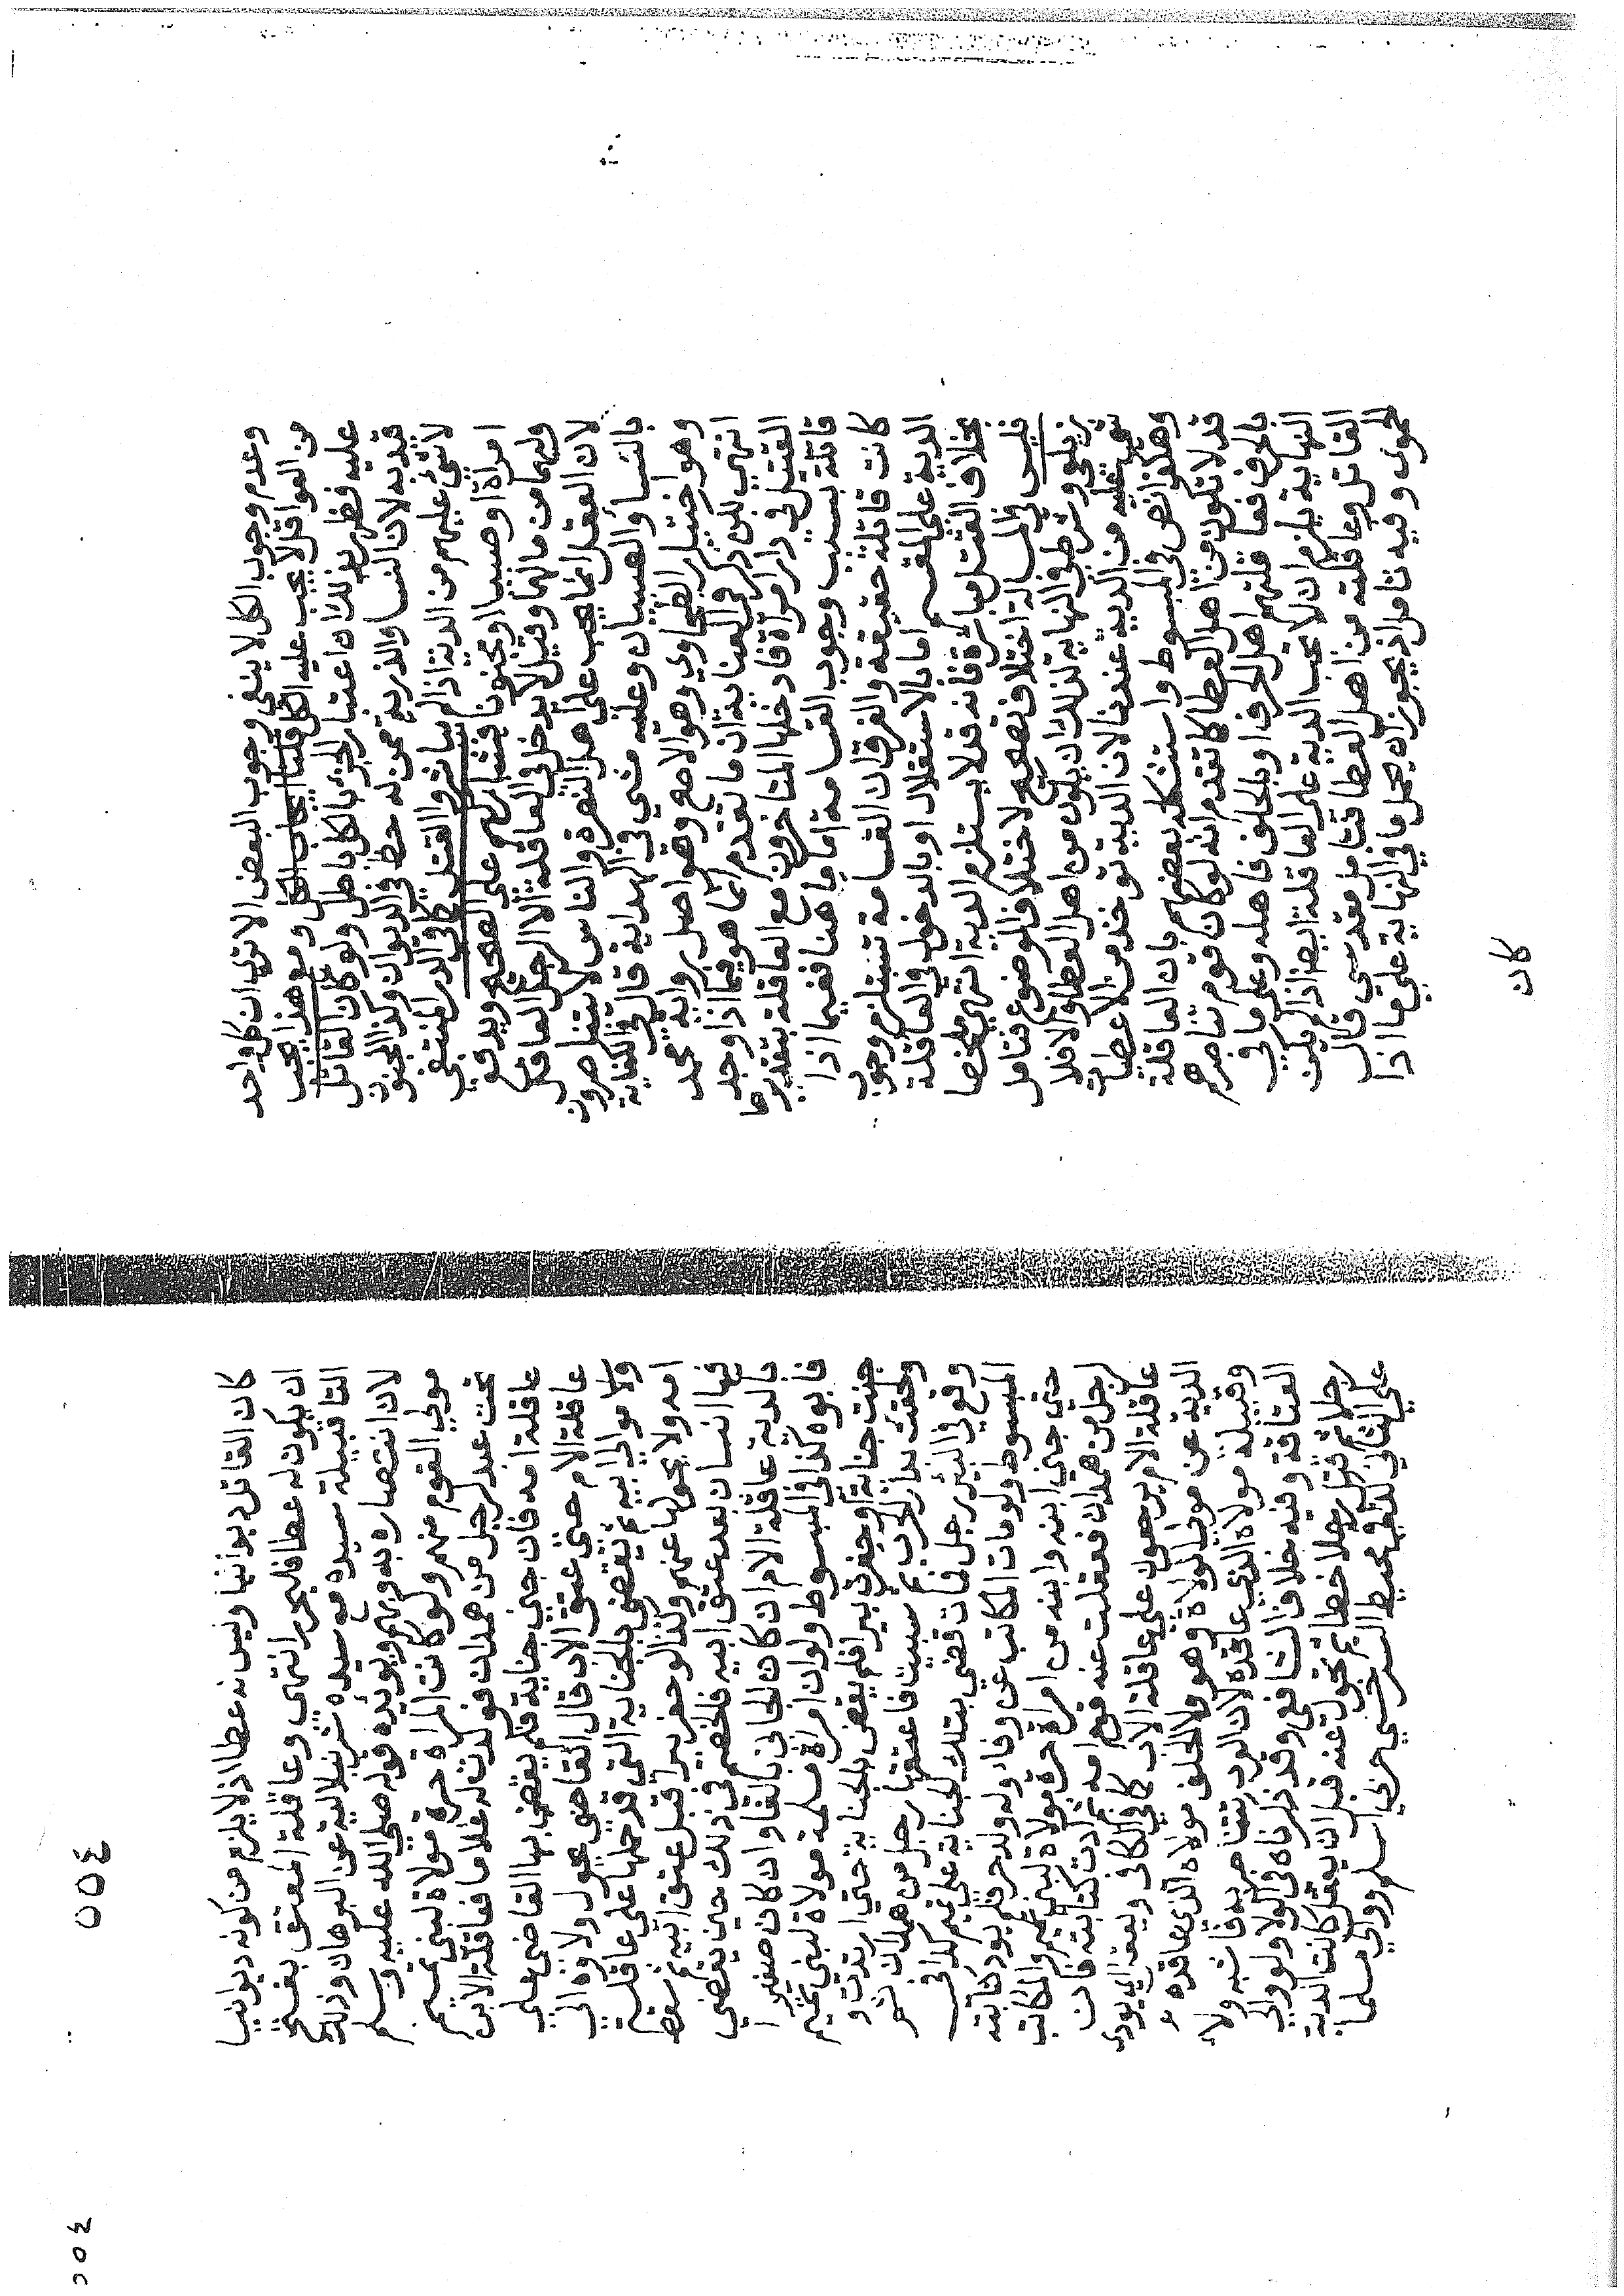 وعدم وجوب الكل لا ينفي وجوب البعض الا ترى ان كل واحد
من العواقل لا يجب عليه الكل قلنا ايجاب الكل ومع هذا يجب
عليه فظهر بذلك ان اعتبار الجزء بالكل باطل ولو كان القاتل
قيد به لان النسا والذرية ممن له حظ في الديوان وكذا المجنون
لا شئ عليهم من الدية اذا لم يباشروا القتل كما في الدر المنتقى
امراة او صبيا او مجنونا فتشاركهم على الصحيح ويدفع
وليهما من مالهما وقيل لا يدخل في العاقلة الا الرجل العاقل
لان العقل انما يجب على اهل النصرة والناس لا يتناصرون
بالنسا والصبيان وعليه مشى في الهداية قال في الكفاية
وهو اختيار الطحاوي وهو الاصح وهو اصل رواية محمد
انتهى لكن ذكر في العناية ان ما تقدم انما هو فيما اذا وجد
القتيل في دار امراة فادخلها المتاخرون مع العاقلة بتقديرها
قاتلة بسبب وجوب القسامة اما ما هنا ففيما اذا
كانت قاتلة حقيقة والفرق ان القسامة تستلزم وجوب
الدية على المقسم اما بالاستقلال او بالدخول في العاقلة
بخلاف القتل مباشرة فانه قد لا يستلزم الدية انتهى ملخصا
فليس في المسالة اختلاف تصحيح لاختلاف الموضوع فتامل
زيلعي وشرط في النهاية لذلك ان يكون من اهل العطا والا فلا
شئ عليه من الدية عندنا لان الدية تؤخذ من الاعطيات
وهكذا نص في المبسوط واستشكله بعضهم بان العاقلة
قد لا تكون من اهل العطا كما تقدم انه لو كان قوم تناصرهم
بالحرف فعاقلتهم اهل الحرف او بالحلف فاهله وعلى ما في
النهاية يلزم ان لا يجب الدية على العاقلة ايضا اذا لم يكن
القاتل وعاقلته من اهل العطا فتامل مقدسي قال
الحموي وفيه تامل اذ يجوز ان يحمل ما في النهاية على ما اذا
كان
٥٥٤
كان القاتل ديوانيا وليس له عطا اذ لا يلزم من كونه ديوانيا
ان يكون له عطا فليحرر انتهى وعاقلة المعتق بفتح
التا قبيلة سيده مع سيده شرنبلالية عن البرهان وذلك
لان انتصاره به وبهم ويؤيده قوله صلى الله عليه وسلم
مولى القوم منهم ولو كانت المراة حرة مولاة لبني تميم
تحت عبد لرجل من همدان فولدت له غلاما فعاقلة الابن
عاقلة امه فان جنى جناية فلم يقض بها القاضي على
عاقلة الام حتى عتق الاب قال القاضي يحول ولاوه الى
ولا موالي ابيه ثم يقضي بالجناية التي قد جعلها على عاقلة
امه ولا يحولها عنهم وكذا لو حفر بيرا قبل عتق ابيه ثم سقط
فيها انسان بعد عتق ابيه فالخصم في ذلك حين يقضي
بالدية عاقلة الام ان كان الجاني بالغا وان كان صغيرا
فابوه كذا في المبسوط ولو ان امراة مسلمة مولاة لبني تميم
جنت جناية او حفرت بيرا فلم يقض بالجناية حتى ارتدت و
لحقت بدار الحرب ثم سبيت فاعتقها رجل من همدان ثم
وقع في البئر رجل فمات قضي بتلك الجناية على تميم كذا في
المبسوط ولو مات المكاتب عن وفاء وله ولد حر فلم يود كتابته
حتى جنى ابنه وابنه من امراة حرة مولاة لبني تميم والمكاتب
لرجل من همدان فعقلت عنه قوم امه ثم ادت كتابته فان
عاقلة الام يرجعون على عاقلة الاب كما في الكافي ويعقل اي يودي
الدية عن مولى الموالاة وهو الحلف مولاه الذي عاقده
وقبيلة مولاه الذي عاقده لان العرب تتناصر به فاشبه ولا
العتاقة وفيه خلاف الشافعي وقد ذكرناه في الولا ولو والى
رجلا ثم قتل رجلا خطا ثم تحول عنه قبل ان يعقل كانت الدية
على الثاني كذا في محيط السرخسي حربي اسلم ووالى مسلما
٥٥٤